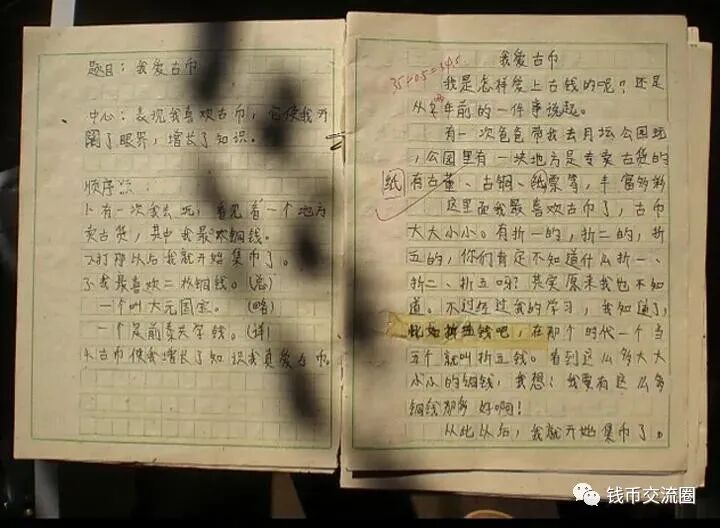 题目：我爱古币
中心：表现我喜欢古币，它使我开
阔了眼界，增长了知识。
顺序：
1.有一次我去玩，看见有一个地方
卖古货，其中我最铜钱。
2.打那以后我就开始集币了。
3.我最喜欢二枚铜钱。（总）
一个叫大元国宝。（略）
一个是前秦大字钱。（详）
4.古币使我增长了知识我真爱古币。
35+0.5=
我爱古币
我是怎样爱上古钱的呢？还是
从两年前的一件事说起。
有一次爸爸带我去月坛公园玩
，公园里有一块地方是专卖古货的
纸
有古董、古铜、纸票等，丰富多彩
这里面我最喜欢古币了，古币
大大小小。有折一的，折二的，折
五的，你们肯定不知道什么折一、
折二、折五呀？其实原来我也不知
道。不过经过我的学习，我知道了，
比如折五钱吧，在那个时代一个当
五个就叫折五钱。看到这么多大大
小小的铜钱，我想：我要有这么多
铜钱那多好啊！
从此以后，我就开始集币了。
钱币交流圈